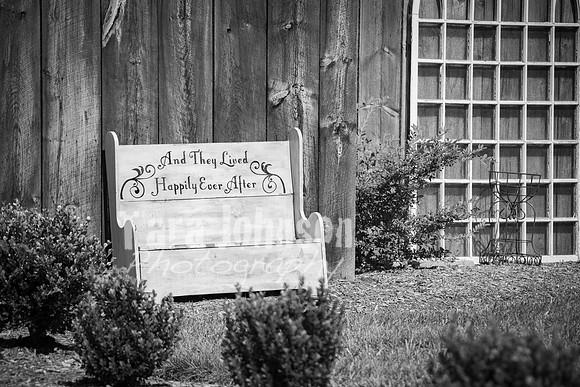 And They Lived
Happily Ever After
Johnson
Photography